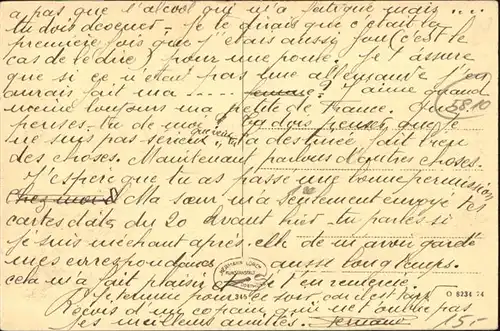 a pas que l'alcool qui m'a fatigué mais ....
tu dois deviner. Je te dirais que c'était la
première fois que j'étais aussi fou (c'est le
cas de le dire) pour une poule. Je t'assure
que si ce n'était pas une allemande j'en
aurais fait ma ..... femme? J'aime quand
même toujours ma petite de France. Que
58.10
penses-tu de moi? Tu dois penser que je
ne suis pas sérieux, la destinée fait bien
des choses. Maintenant parlons d'autres choses.
J'espère que tu as passé une bonne permission
chez moi. Ma sœur m'a seulement envoyé tes
cartes datées du 20 avant hier. Tu parles si
je suis méchant après elle de m'avoir gardé
mes correspondances aussi longtemps.
cela m'a fait plaisir et je t'en remercie.
HERMANN LORCH
KUNSTANSTALT
O 8234 74
Je termine pour ce soir
Reçois d'un copain qui ne t'oublie pas
ses meilleures amitiés.